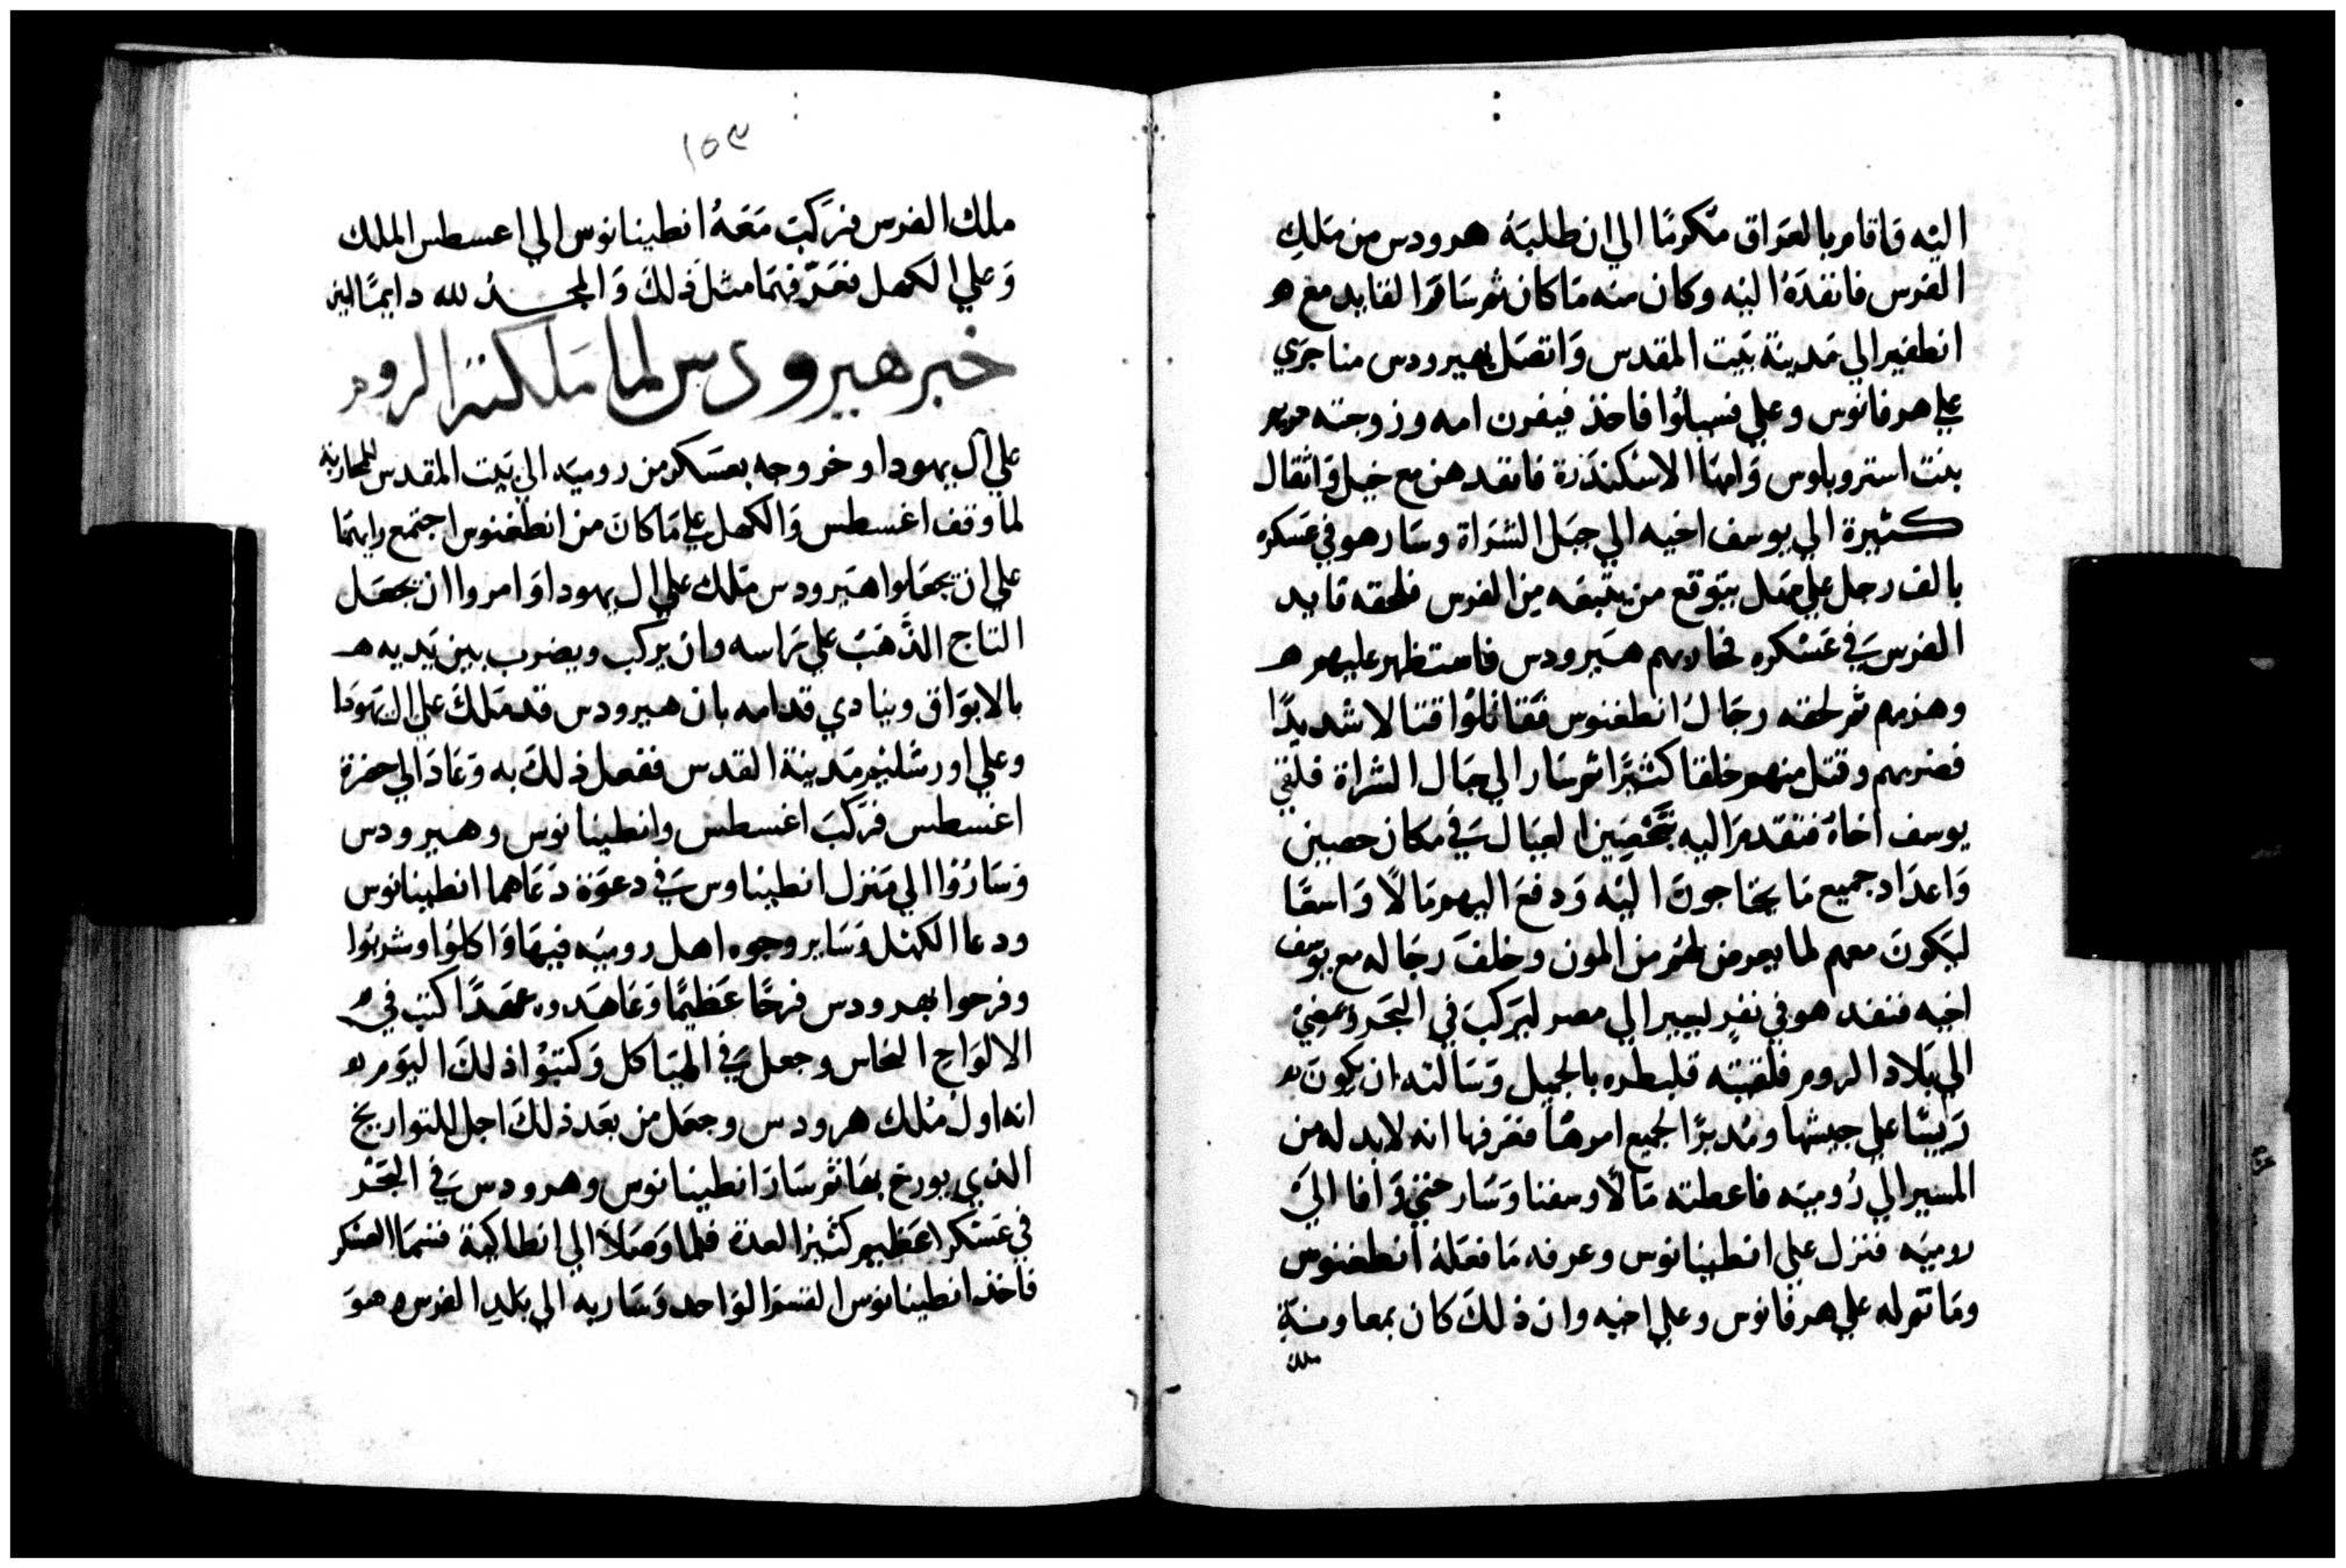 اليه فاقام بالعراق مكرمًا الي ان طلبه هرودس من ملك
الفرس فانفده اليه وكان منه ما كان ثم سافر القايد مع
انطغير الي مدينة بيت المقدس واتصل بهيرودس مناجري
علي هرقانوس وعلي فسيلوا فاخذ فيفرن امه وزوجته مريم
بنت استروبلوس وامها الاسكندرة فانفدهن مع خيل واثقال
كثيرة الي يوسف اخيه الي جبل الشراة وسار هو في عسكره
بالف رجل علي مهل يتوقع من يتبعه من الفرس فلحقه قايد
الفرس في عسكره فحاربهم هيرودس فاستظهر عليهم
وهزمهم ثم لحقه رجال انطغنوس فقاتلوا قتالا شديدًا
فضربهم وقتل منهم خلقا كثيرًا ثم سار الي جبال الشراة فلقي
يوسف اخاه فتقدم اليه بتحصين العيال في مكان حصين
واعداد جميع ما يحتاجون اليه ودفع اليهم مالًا واسعًا
ليكون معهم لما يعرض لهم من المون وخلف رجاله مع يوسف
اخيه فنفد هو في نفر يسير الي مصر ليركب في البحر ويمضي
الي بلاد الروم فلقيته قلبطره بالجميل وسالته ان يكون
رييسًا علي جيشها ومدبرًا لجميع امرها فعرفها انه لا بد له من
المسير الي روميه فاعطته مالًا وسفنا وسار حتي وافا الي
روميه فنزل علي انطينانوس وعرفه ما فعله انطغنوس
وما تم له علي هرقانوس وعلي اخيه وان ذلك كان بمعاونة
ملك
١٥٣
ملك الفرس فركب معه انطينانوس الي اعسطس الملك
وعلي الكهل فعرفهما مثل ذلك والمجد لله دايمًا
خبر هيرودس لما ملكته الروم
علي ال يهودا وخروجه بعسكر من روميه الي بيت المقدس للمحاربة
لما وقف اغسطس والكهل علي ما كان من انطغنوس اجتمع رايهما
علي ان يجعلوا هيرودس ملك علي ال يهودا وامروا ان يجعل
التاج الذهب علي راسه وان يركب ويضرب بين يديه
بالابواق وينادي قدامه بان هيرودس قد ملك علي ال يهودا
وعلي اورشليم مدينة القدس ففعل ذلك به وعاد الي حضرة
اغسطس فركب اغسطس وانطينانوس وهيرودس
وساروا الي منزل انطيناوس في دعوة دعاهما انطينانوس
ودعا الكهل وساير وجوه اهل روميه فيها واكلوا وشربوا
وفرحوا بهرودس فرحًا عظيمًا وعاهدوه عهدًا كتب في
الالواح النحاس وجعل في الهياكل وكتبوا ذلك اليوم
انه اول ملك هرودس وجعل من بعد ذلك اجل للتواريخ
الذي يورخ بها ثم سار انطينانوس وهرودس في البحر
في عسكر عظيم كثير العدة فلما وصلا الي انطاكية قسما العسكر
فاخذ انطينانوس القسم الواحد وسار به الي بلد الفرس وهو